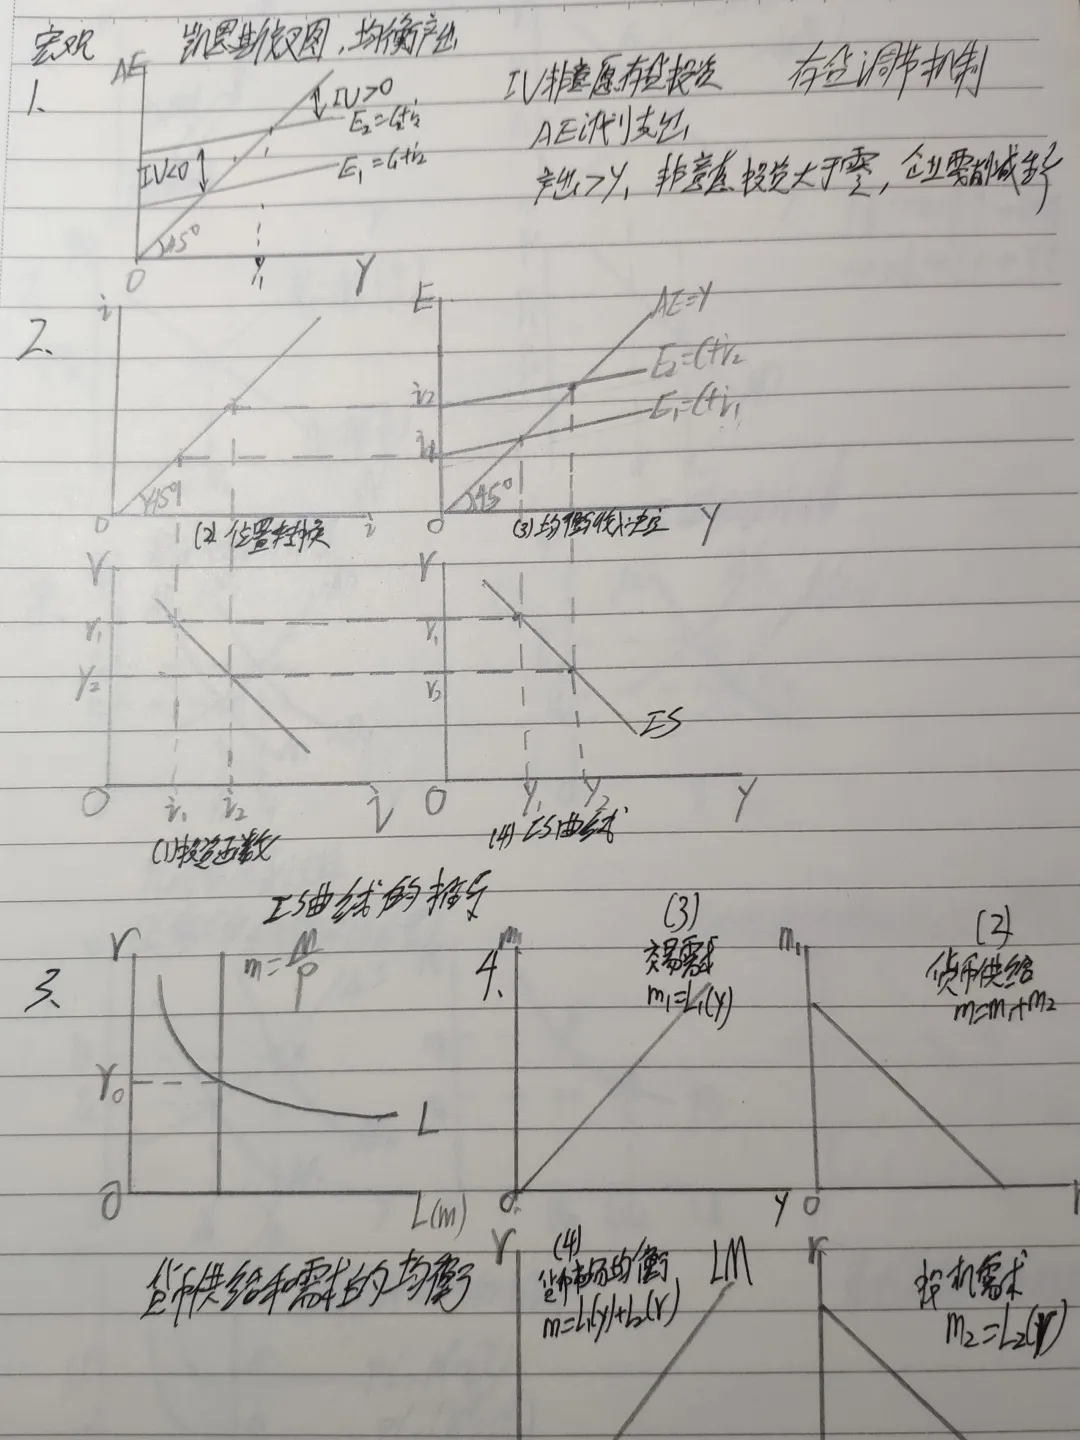 宏观 凯恩斯交叉图,均衡产出
1、
AE
IU>0
E₂=C+i₂
IU<0
E₁=C+i₂
45°
O Y₁ Y
IU非意愿存货投资 存货调节机制
AE计划支出
产出>Y₁ 非意愿投资大于零,企业需削减生产
2、
i
45°
O i
(2)位置转换
E
AE=Y
E₂=C+i₂
i₂
E₁=C+i₁
i₁
45°
O Y
(3)均衡收入决定
r
r₁
r₂
O i₁ i₂ i
(1)投资函数
r
r₁
r₂
IS
O Y₁ Y₂ y
(4)IS曲线
IS曲线的推导
3、
r
m=M/P
r₀
L
O L(m)
货币供给和需求的均衡
4、
m₁
(3)
交易需求
m₁=L₁(y)
O y
m₁
(2)
货币供给
m=m₁+m₂
O
r
(4)
货币市场均衡
m=L₁(y)+L₂(r)
LM
r
投机需求
m₂=L₂(r)